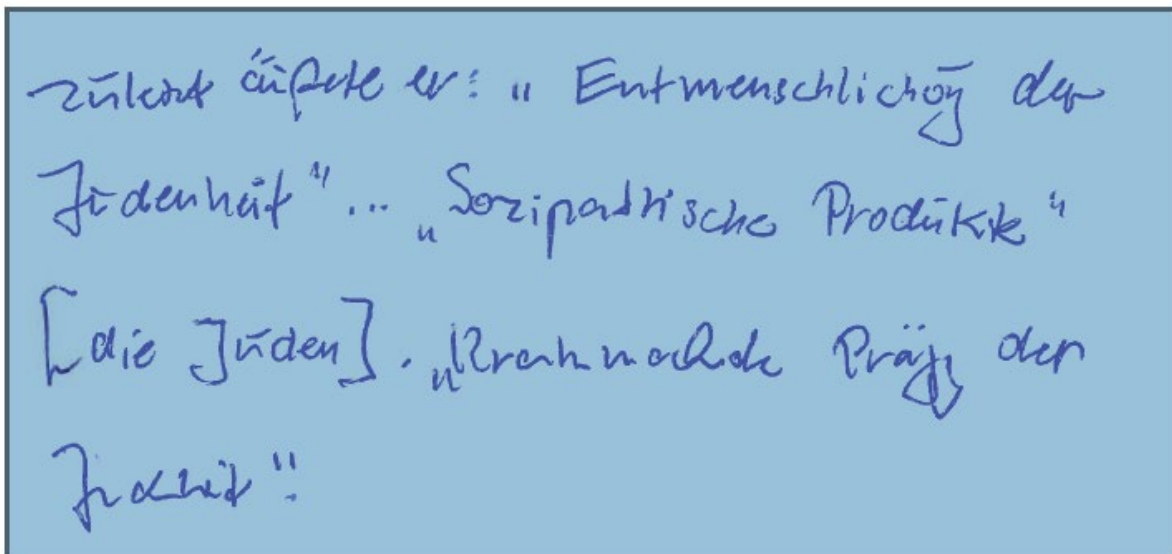 zuletzt äußerte er: „Entmenschlichung der
Judenheit" ... „Soziopathische Produkte"
[die Juden]. „Krankmachende Präg der
Judenheit".